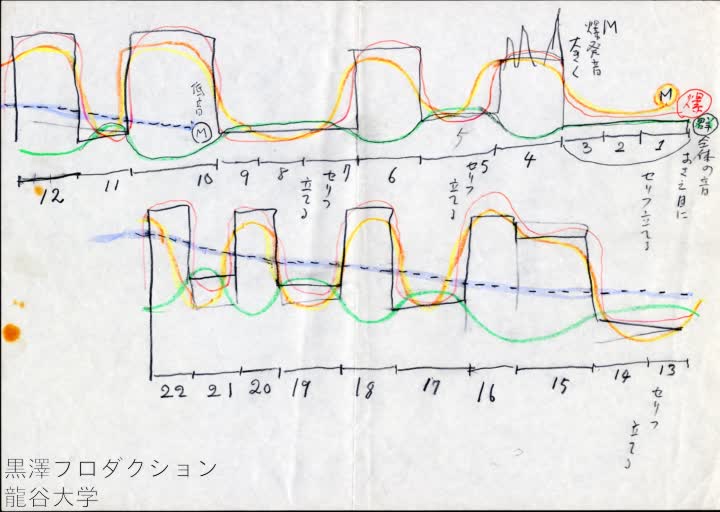 M
爆発音
大きく
M
爆
群
全体の音
おさえ目に
低音
M
5
3 2 1
12 11 10 9 8 7 6 5 4
セリフ
立てる
セリフ
立てる
セリフ立てる
22 21 20 19 18 17 16 15 14 13
セリフ
立てる
セリフ
立てる
黒澤フロダクション
龍谷大学